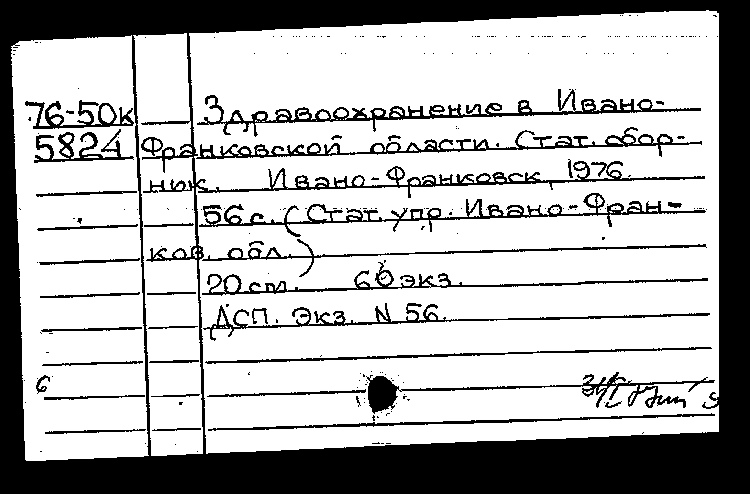 76-50к Здравоохранение в Ивано-
5824 Франковской области. Стат. сбор-
ник. Ивано-Франковск, 1976.
56 с. (Стат. упр. Ивано-Фран-
ков. обл.)
20 см. 60 экз.
ДСП. Экз. N 56.
6